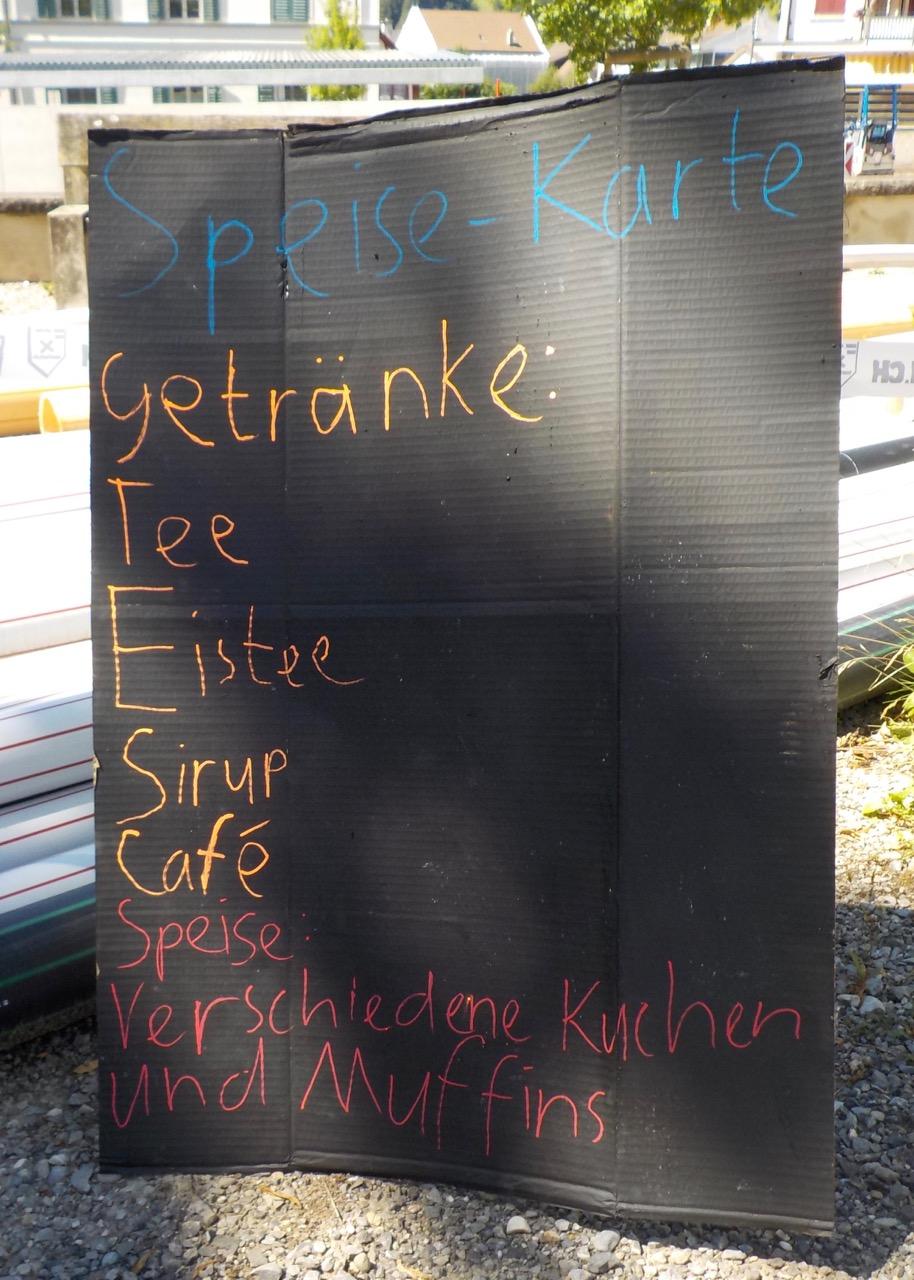 Speise-Karte
Getränke:
Tee
Eistee
Sirup
Café
Speise:
Verschiedene Kuchen
und Muffins
.CH